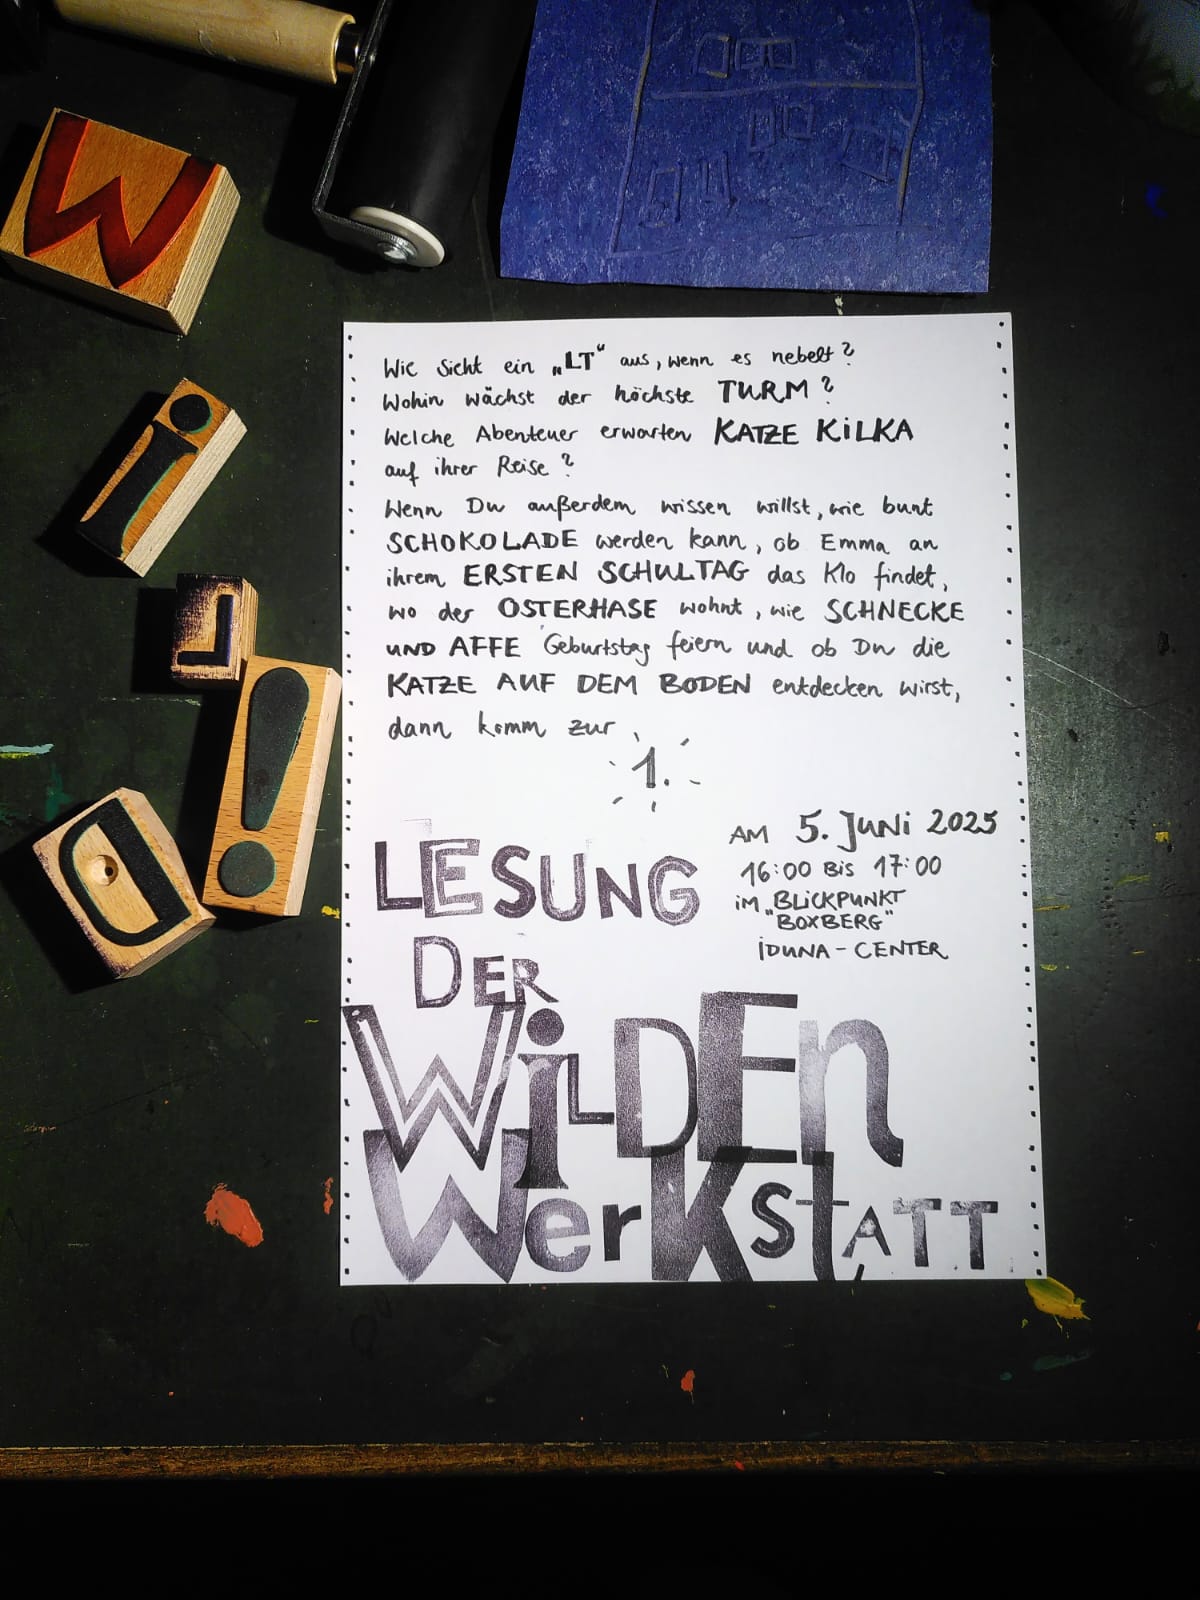 Wie sieht ein „LT“ aus, wenn es nebelt?
Wohin wächst der höchste TURM?
Welche Abenteuer erwarten KATZE KiLKA
auf ihrer Reise?
Wenn Du außerdem wissen willst, wie bunt
SCHOKOLADE werden kann, ob Emma an
ihrem ERSTEN SCHULTAG das Klo findet,
wo der OSTERHASE wohnt, wie SCHNECKE
UND AFFE Geburtstag feiern und ob Du die
KATZE AUF DEM BODEN entdecken wirst,
dann komm zur
1.
LESUNG
DER
WiLDEn
WerKstATT
AM 5. JUNi 2025
16:00 BiS 17:00
iM BLiCKPUNKT
"BOXBERG"
iDUNA-CENTER
W
i
L
!
D